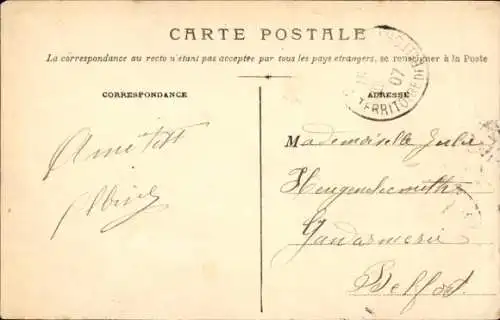 CARTE POSTALE
La correspondance au recto n'étant pas acceptée par tous les pays étrangers, se renseigner à la Poste
CORRESPONDANCE
ADRESSE
Amitiés
Mademoiselle Julie
Gendarmerie
Belfort
07
TERRITOIRE DE